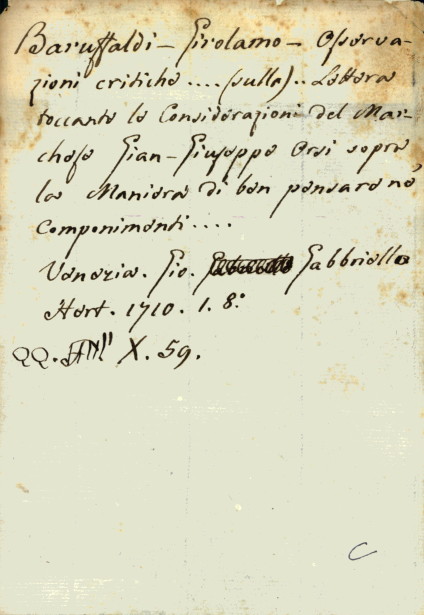 Baruffaldi - Girolamo - Osserva-
zioni critiche .... (sulla) .. Lettera
toccante le Considerazioni del Mar-
chese Gian-Giuseppe Orsi sopra
la Maniera di ben pensare ne'
componimenti ....
Venezia. Gio. Gabbriello
Hert. 1710. 1. 8.°
QQ. X. 59.
C